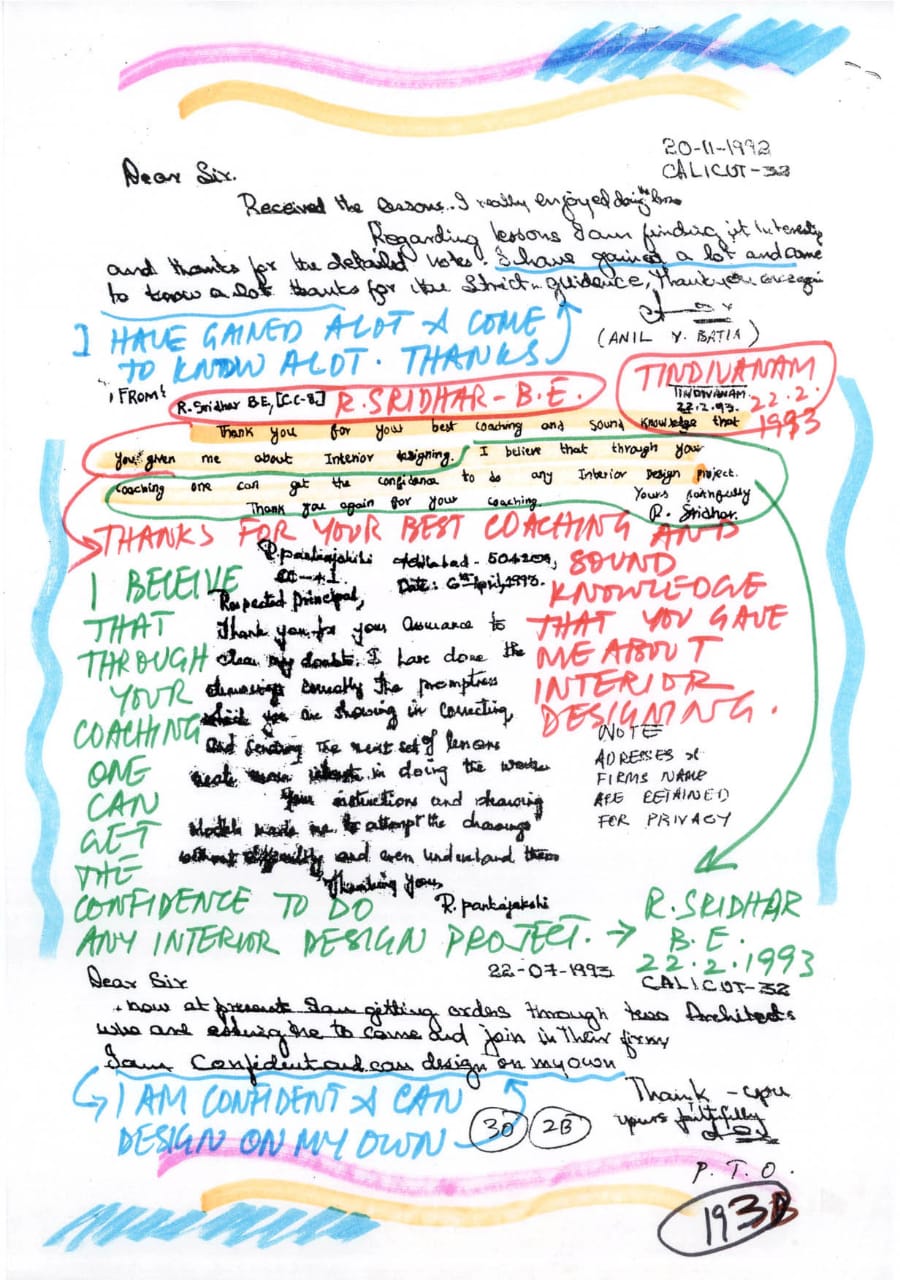 20-11-1992
CALICUT-32
Dear Sir.
Received the lessons.. I really enjoyed doing
Regarding lessons I am finding it
and thanks for the detailed notes. I have gained a lot and come
to know a lot thanks for the Strict guidence, Thank you once again
(ANIL Y. BATIA)
I HAVE GAINED A LOT & COME
TO KNOW A LOT. THANKS
FROM:
R. Sridhar BE, [CC-8.] R. SRIDHAR - B.E.
TINDIVANAM
TINDIVANAM.
22.2.93. 22.2.
1993
Thank you for your best coaching and sound knowledge that
you given me about Interior designing. I believe that through your
coaching one can get the confidence to do any Interior Design project.
Thank you again for your coaching. Yours faithfully
R. Sridhar.
THANKS FOR YOUR BEST COACHING AND
SOUND
KNOWLEDGE
THAT YOU GAVE
ME ABOUT
INTERIOR
DESIGNING.
I BELEIVE
THAT
THROUGH
YOUR
COACHING
ONE
CAN
GET
THE
CONFIDENCE TO DO
ANY INTERIOR DESIGN PROJECT. → R. SRIDHAR
B.E.
22.2.1993
R. pankajakshi
CC-41
Adilabad - 504209,
Date: 6th April, 1993.
Respected principal,
Thank you for your assurance to
clear my doubts. I have done the
drawings correctly The promptness
which you are showing in correcting,
and sending the next set of lessons
in doing the works
Your instructions and drawing
Models made me to attempt the drawings
without difficulty and even understand them
Thanking you,
R. pankajakshi
NOTE
ADRESSES &
FIRMS NAME
ARE RETAINED
FOR PRIVACY
22-07-1993
CALICUT-32
Dear Sir
now at present I am gitting ordes through two Architects
who are asking me to come and join in their firm
I am Confident and can design on my own
I AM CONFIDENT & CAN
DESIGN ON MY OWN
30 2B
Thank-you
yours faithfully
P.T.O.
193B